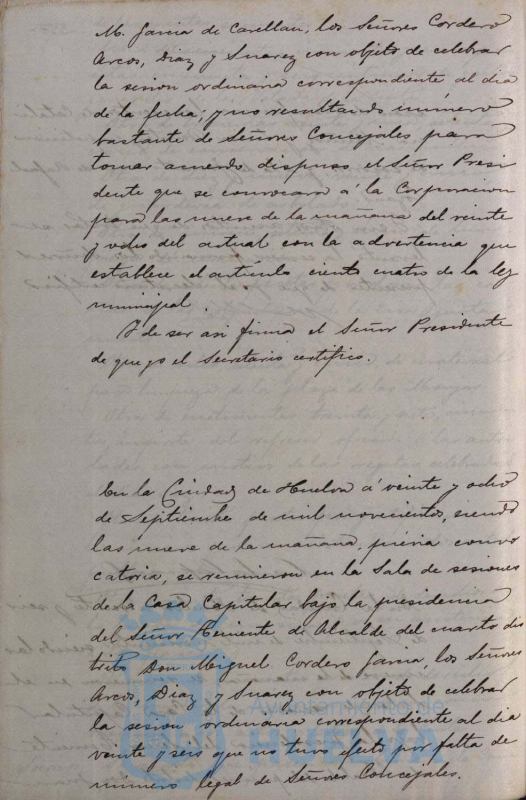 M. Garcia de Carellan, los Señores Cordero
Arcos, Diaz y Suarez con objeto de celebrar
la sesion ordinaria correspondiente al dia
de la fecha; y no resultando número
bastante de Señores Concejales para
tomar acuerdo dispuso el Señor Presi
dente que se convocara á la Corporacion
para las nueve de la mañana del veinte
y ocho del actual con la advertencia que
establece el artículo ciento cuatro de la ley
municipal.
Y de ser asi firma el Señor Presidente
de que yo el Secretario certifico.
En la Ciudad de Huelva á veinte y ocho
de Septiembre de mil novecientos, siendo
las nueve de la mañana, prévia convo
catoria, se reunieron en la Sala de sesiones
de la Casa Capitular bajo la presidencia
del Señor Teniente de Alcalde del cuarto dis
trito Don Miguel Cordero Garcia, los Señores
Arcos, Diaz y Suarez con objeto de celebrar
la sesion ordinaria correspondiente al dia
veinte y seis que no tuvo efecto por falta de
número legal de Señores Concejales.
Ayuntamiento de
HUELVA